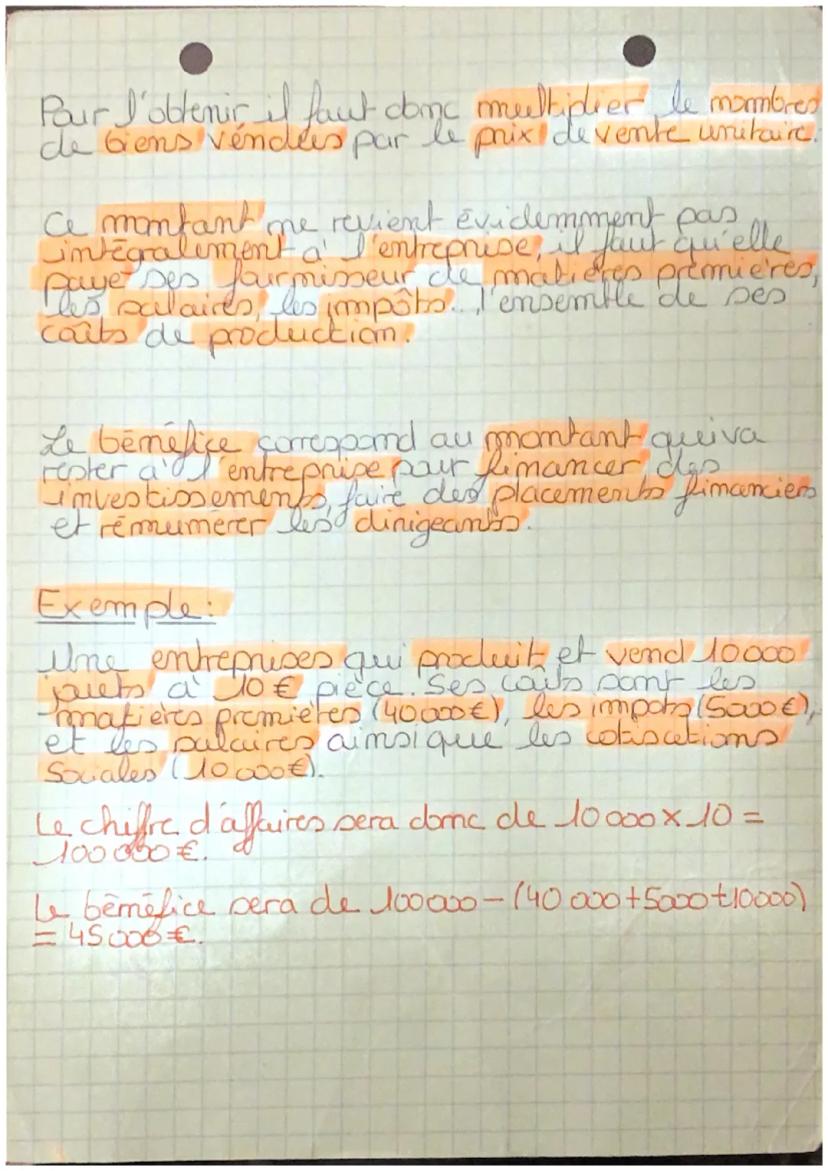 Pour l'obtenir il faut donc multiplier le nombres
de biens vendues par le prix de vente unitaire.
Ce montant ne revient évidemment pas
intégralement à l'entreprise, il faut qu'elle
paye ses fournisseur de matières premières,
les salaires, les impôts... l'ensemble de ses
coûts de production.
Le bénéfice correspond au montant qui va
rester à l'entreprise pour financer des
investissements, faire des placements financiers
et rémunérer les dirigeants.
Exemple:
Une entreprises qui produit et vend 10000
jouets à 10€ pièce. Ses coûts sont les
matières premières (40000€), les impots (5000€),
et les salaires ainsi que les cotisations
Sociales (10000€).
Le chiffre d'affaires sera donc de 10000 x 10 =
100000€.
Le bénéfice sera de 100000 - (40 000+5000+10000)
= 45000€.